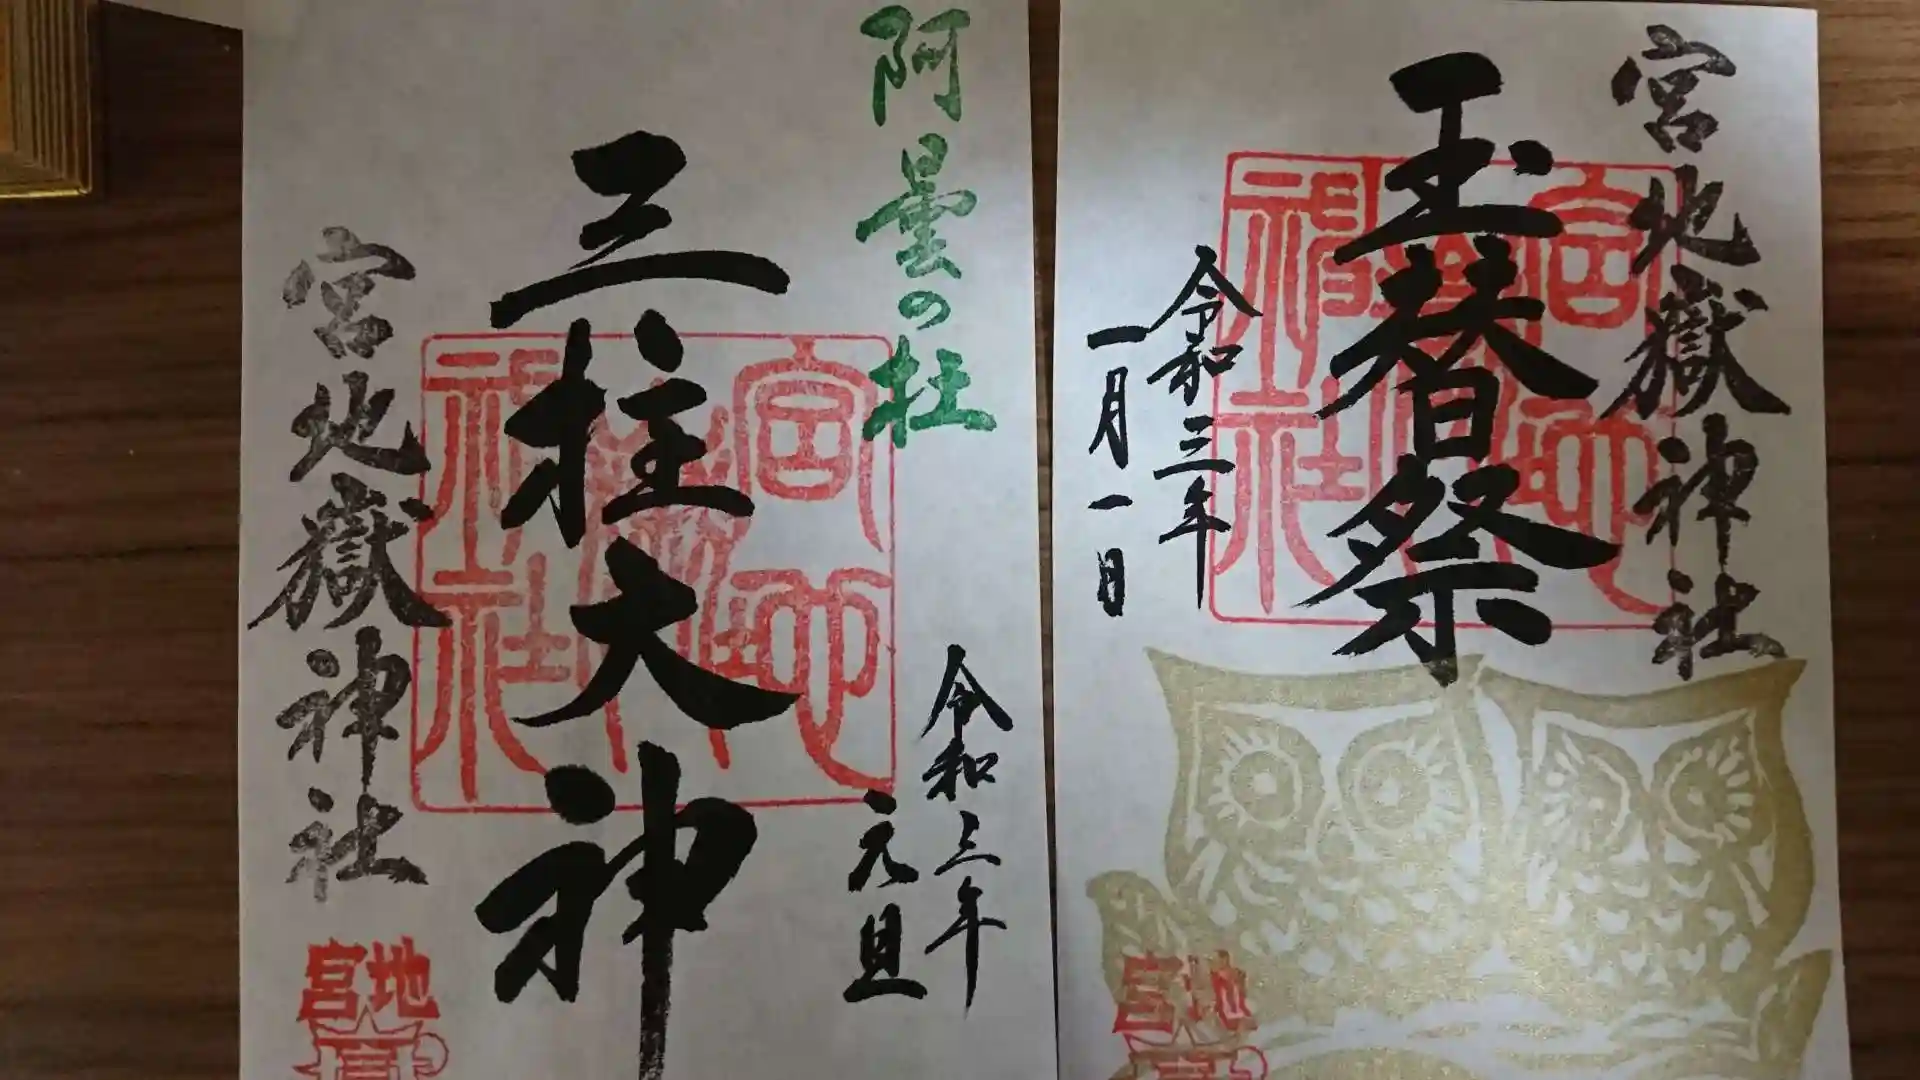 宮地嶽神社
玉替祭
令和三年
一月一日
宮地嶽神社
宮地
阿曇の杜
令和三年
元旦
三柱大神
宮地嶽神社
宮地嶽神社
宮地